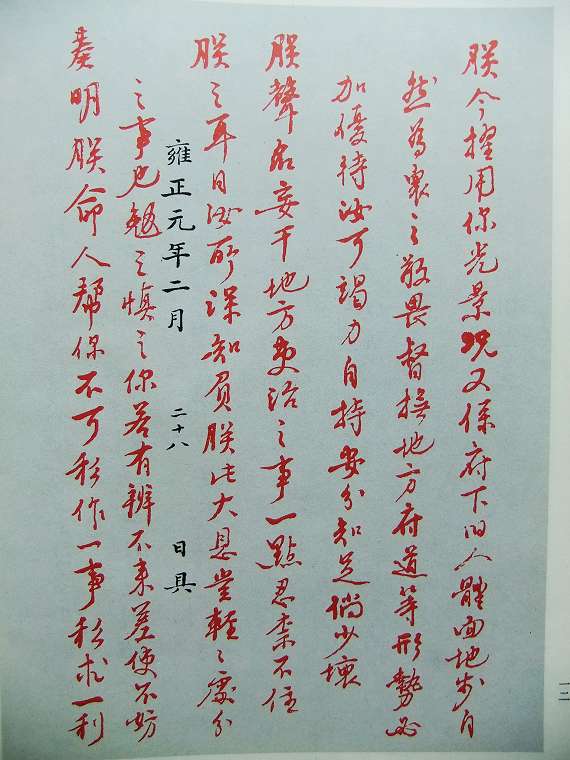 朕今擢用你光景況又係府下旧人體面地步自
然為衆之敬畏督撫地方府道等形勢必
加優待汝可竭力自持安分知足倘少壞
朕聲名妄干地方吏治之事一點忍柰不住
朕之耳目汝所深知負朕此大恩豈輕々處分
之事也勉之慎之你若有辦不来差使不妨
奏明朕命人幫你不可私作一事私求一利
雍正元年二月 二十八 日具
一二